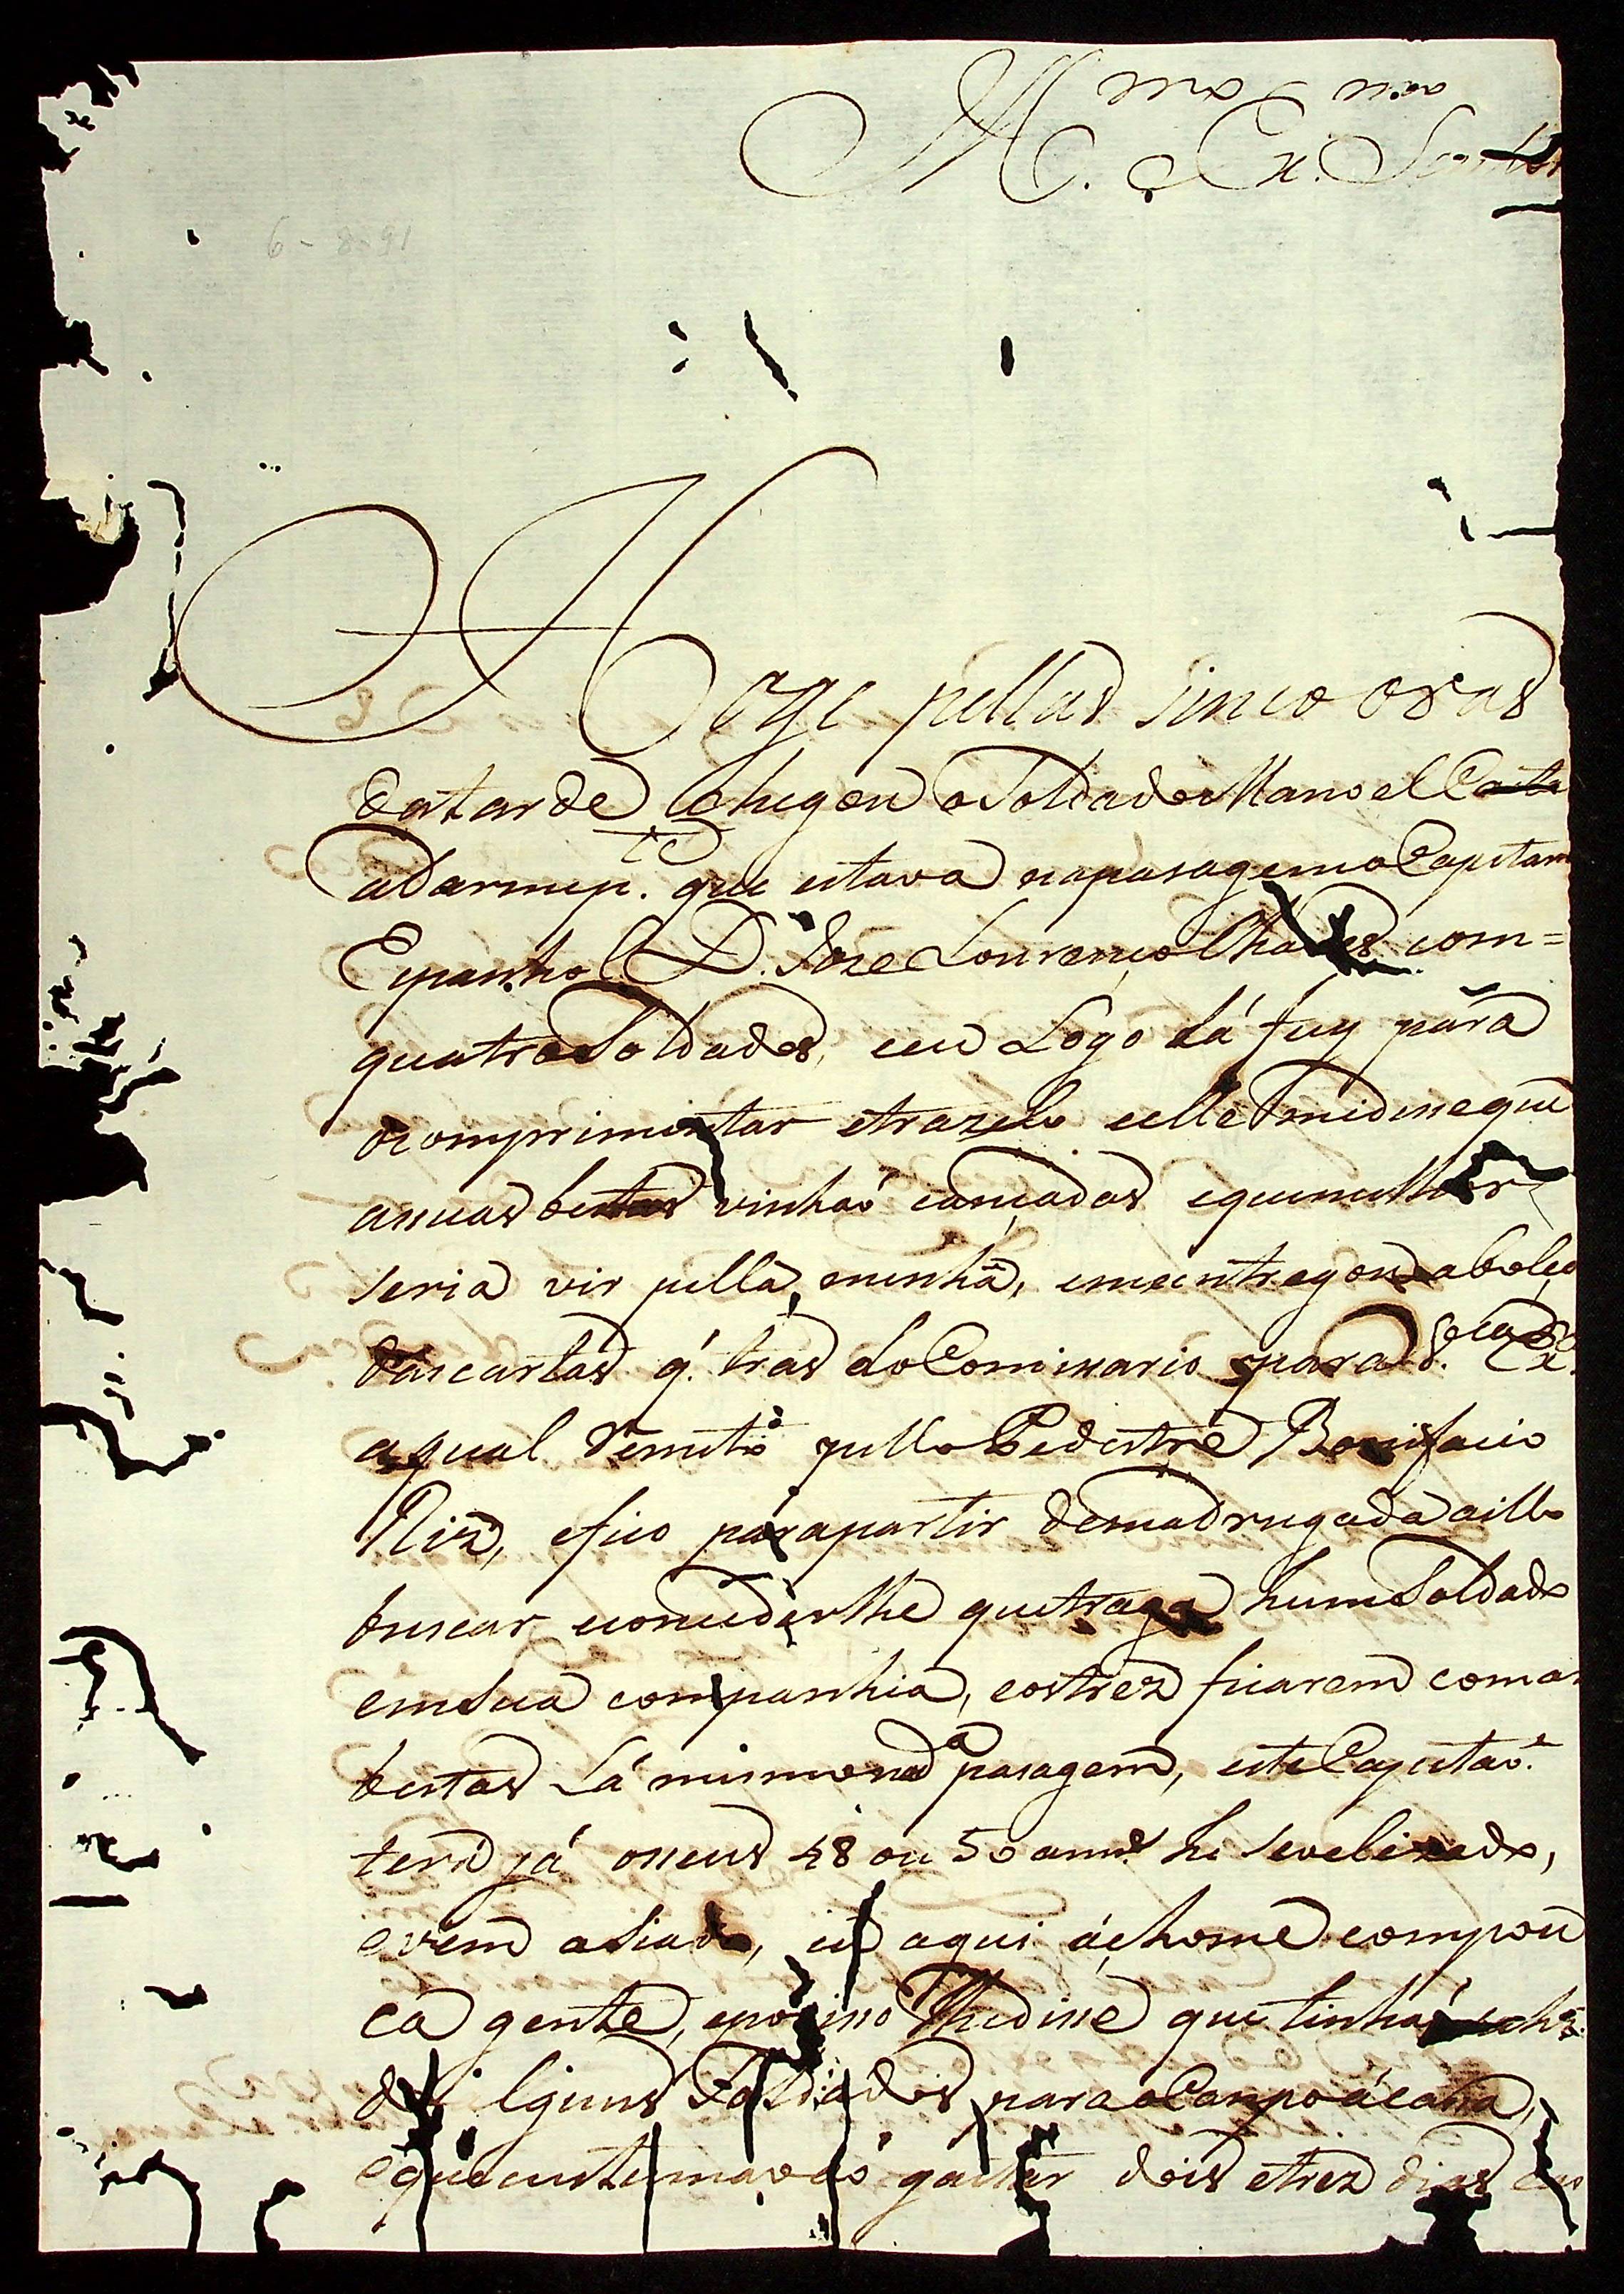 6-8-91
Hoge pellas sinco oras
datarde Chegou o Soldado Manoel Costa
adarmep.te que estava napasagem o Capitam
Espanhol D. Joze Lourenço Chaves com=
quatro Soldados, eeu Logo Lá fuy para
ocomprimintar etrazelo eelle medise que
assuas bestas vinhaõ cansadas eque milhor
seria vir pella menhã, emeentregou abolça
dascartas q. tras do Comissario para V. Ex.ª
aqual Remito pello Pedestre Bonifacio
Riz, efico parapartir demadrugada aillo
buscar econcederlhe que traga hum Soldado
emSua companhia, eostrez ficarem comas
bestas Lá mesmo na pasagem, este Capitaõ
terá já osseus 48 ou 50 annos he sevelizado,
evem asiado, eu aqui áchome compou
ca gente, eporisso lhedise que tinha
alguns Soldados para o Campo ácassa,
eque custumavaõ gastar dois etrez dias